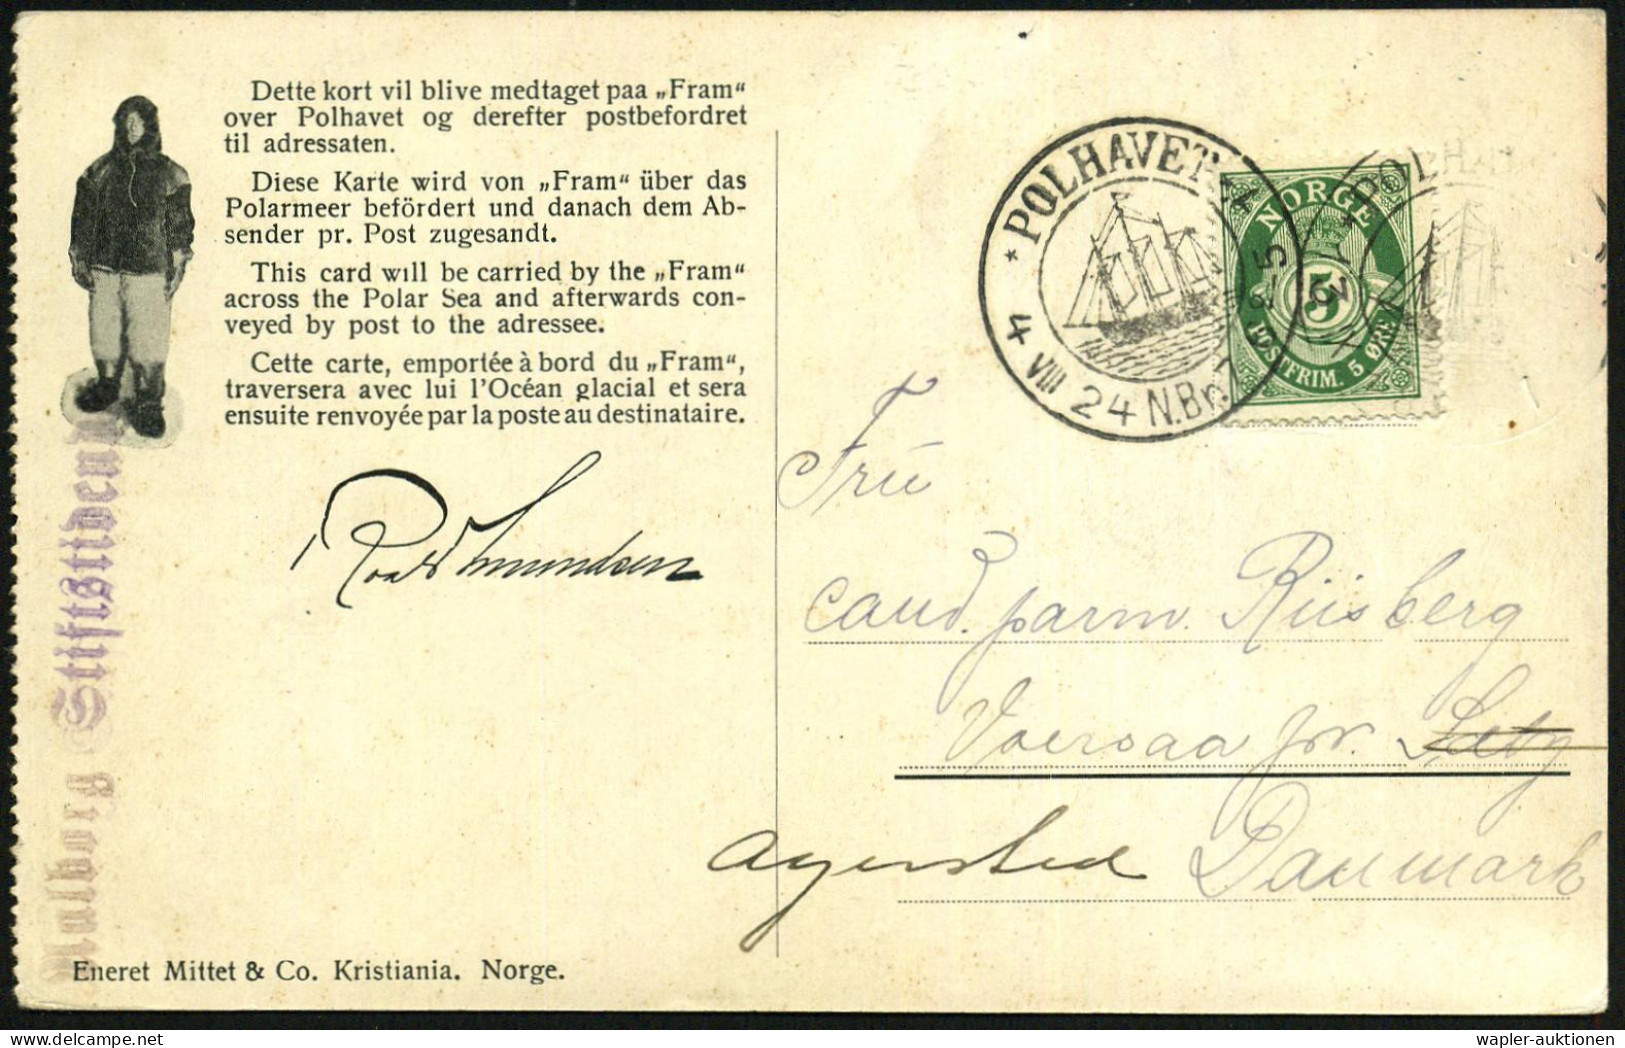 Dette kort vil blive medtaget paa „Fram“
over Polhavet og derefter postbefordret
til adressaten.
Diese Karte wird von „Fram“ über das
Polarmeer befördert und danach dem Ab-
sender pr. Post zugesandt.
This card will be carried by the „Fram“
across the Polar Sea and afterwards con-
veyed by post to the adressee.
Cette carte, emportée à bord du „Fram“,
traversera avec lui l'Océan glacial et sera
ensuite renvoyée par la poste au destinataire.
Roald Amundsen
Aalborg Stiftstidende
Eneret Mittet & Co. Kristiania. Norge.
* POLHAVET
4 VIII 24 N.Br.
POLHAV
NORGE
5
POSTFRIM. 5 ØRE
Frü
cand. parm. Riisberg
Voersaa pr.
Agersted Danmark
wapler-auktionen